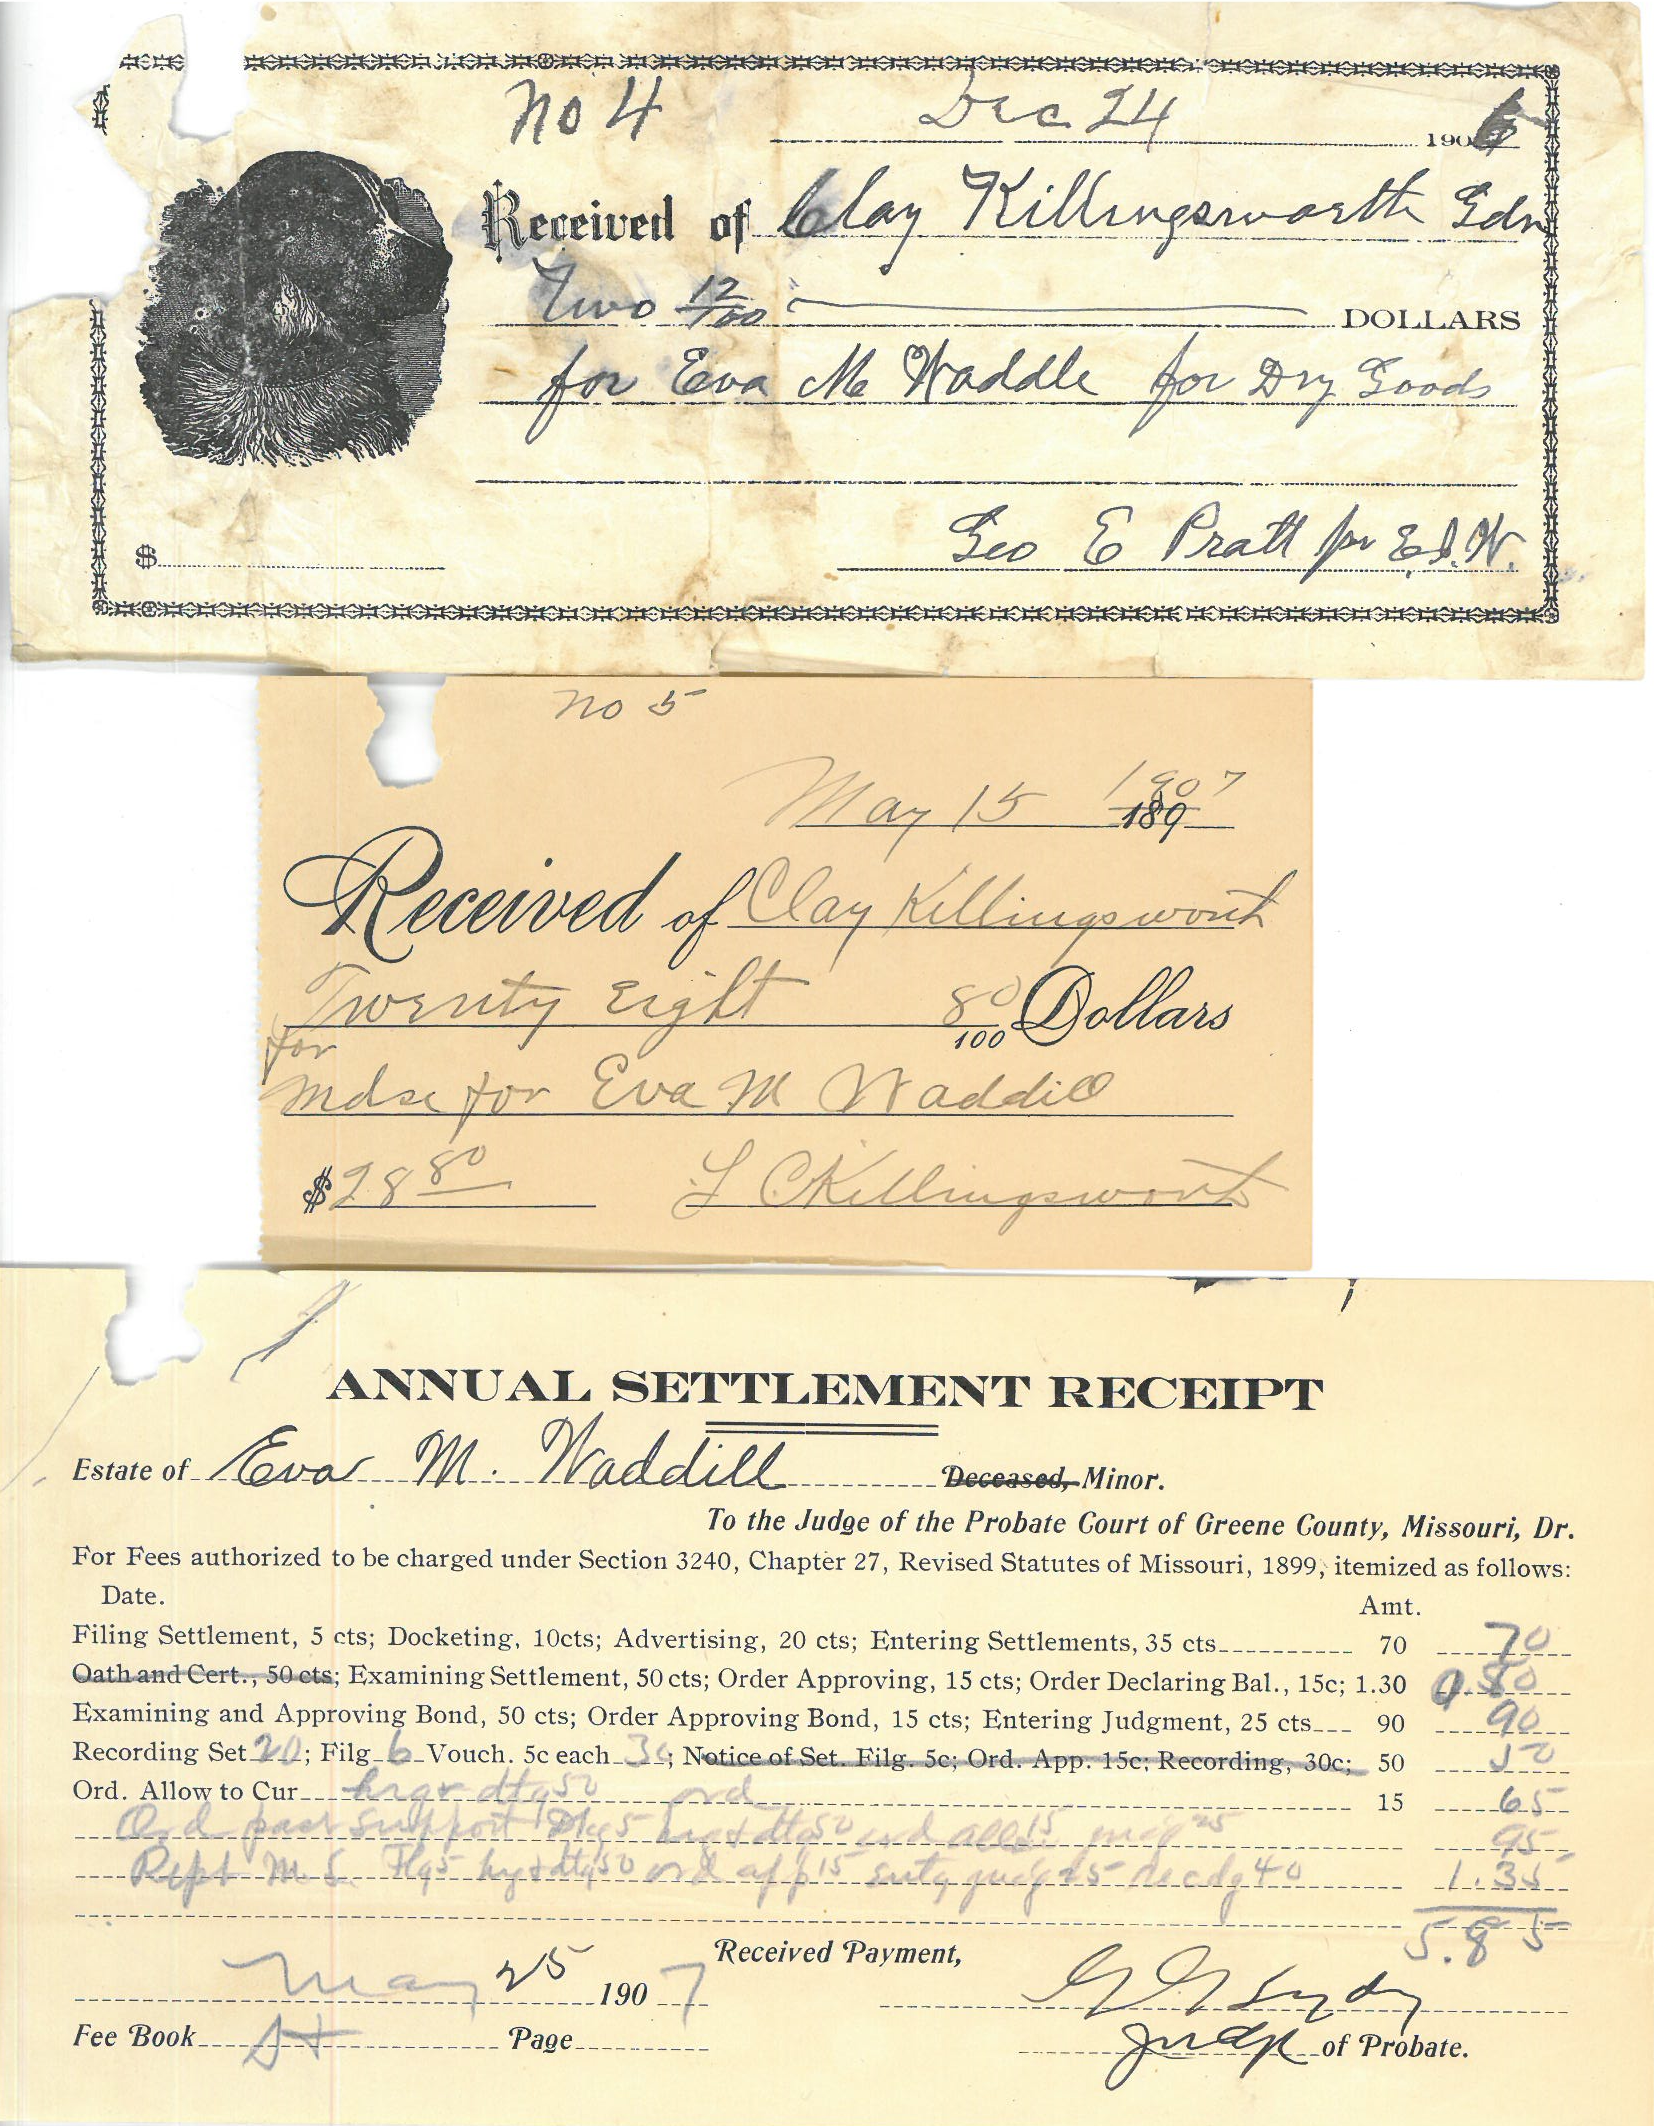 No 4
Dec 24 1906
Received of Clay Killingsworth Gdn
Two 12/100 DOLLARS
for Eva M Waddle for Dry Goods
Geo E Pratt per E.I.W.
$
No 5
May 15 1907 189
Received of Clay Killingsworth
Twenty Eight 80/100 Dollars
for
mdse for Eva M Waddill
$28 80 L C Killingsworth
ANNUAL SETTLEMENT RECEIPT
Estate of Eva M. Waddill Deceased, Minor.
To the Judge of the Probate Court of Greene County, Missouri, Dr.
For Fees authorized to be charged under Section 3240, Chapter 27, Revised Statutes of Missouri, 1899, itemized as follows:
Date. Amt.
Filing Settlement, 5 cts; Docketing, 10cts; Advertising, 20 cts; Entering Settlements, 35 cts 70 70
Oath and Cert., 50 cts; Examining Settlement, 50 cts; Order Approving, 15 cts; Order Declaring Bal., 15c; 1.30 .80
Examining and Approving Bond, 50 cts; Order Approving Bond, 15 cts; Entering Judgment, 25 cts 90 90
Recording Set 20; Filg 6 Vouch. 5c each 30; Notice of Set. Filg. 5c; Ord. App. 15c; Recording, 30c; 50 50
Ord. Allow to Cur hrg & dtg 50 ord 15 65
Ord past support Dkg 5 hrg & dtg 50 ord all 15 judg 25 95
Rept M. S. Flg 5 hrg & dtg 50 ord app 15 entg judg 25 recdg 40 1.35
5.85
May 25 1907 Received Payment,
Fee Book St Page Judge of Probate.